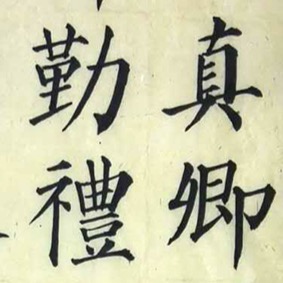 真卿
勤禮